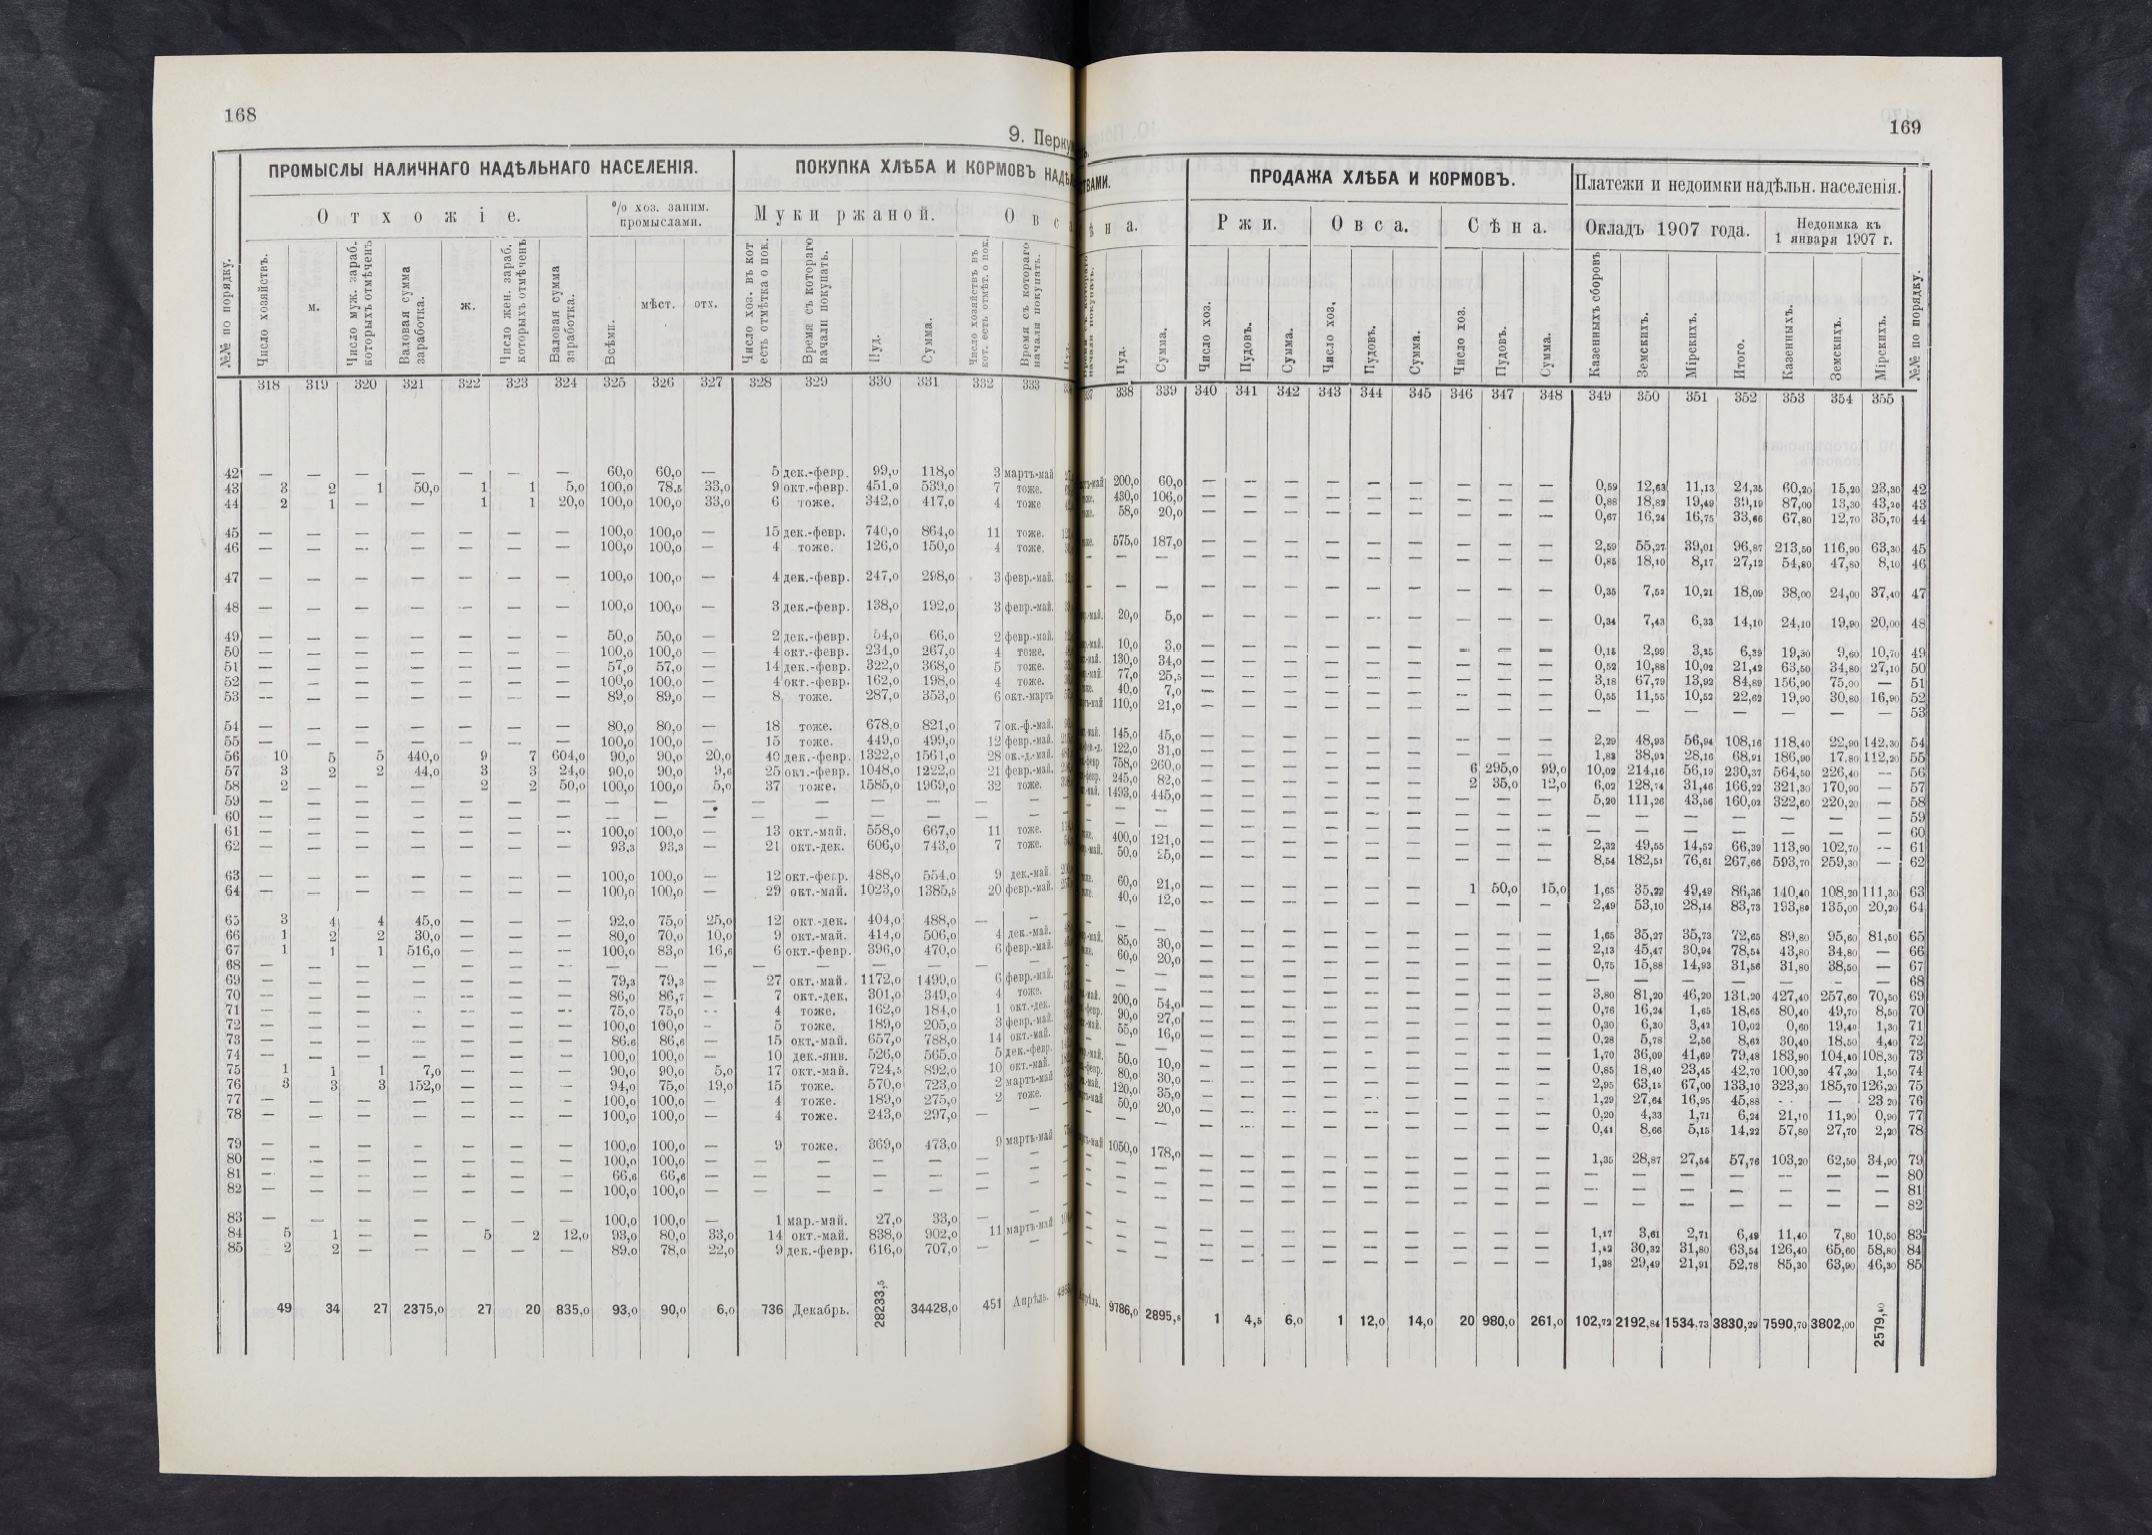 168
9. Перку
ПРОМЫСЛЫ НАЛИЧНАГО НАДѢЛЬНАГО НАСЕЛЕНІЯ.
ПОКУПКА ХЛѢБА И КОРМОВЪ НАДѢЛ
Отхожіе.
% хоз. заним. промыслами.
Муки ржаной.
Овса
№№ по порядку.
Число хозяйствъ.
м.
Число муж. зараб. которыхъ отмѣченъ
Валовая сумма заработка.
ж.
Число жен. зараб. которыхъ отмѣченъ
Валовая сумма заработка.
Всѣми.
мѣст.
отх.
Число хоз. въ кот есть отмѣтка о пок.
Время съ котораго начали покупать.
Пуд.
Сумма.
Число хозяйствъ въ кот. есть отмѣт. о пок.
Время съ котораго начали покупать.
318 319 320 321 322 323 324 325 326 327 328 329 330 331 332 333
42 — — — — — — — 60,0 60,0 — 5 дек.-февр. 99,0 118,0 3 мартъ-май
43 3 2 1 50,0 1 1 5,0 100,0 78,5 33,0 9 окт.-февр. 451,0 539,0 7 тоже.
44 2 1 — — 1 1 20,0 100,0 100,0 33,0 6 тоже. 342,0 417,0 4 тоже
45 — — — — — — — 100,0 100,0 — 15 дек.-февр. 740,0 864,0 11 тоже.
46 — — — — — — — 100,0 100,0 — 4 тоже. 126,0 150,0 4 тоже.
47 — — — — — — — 100,0 100,0 — 4 дек.-февр. 247,0 298,0 3 февр.-май.
48 — — — — — — — 100,0 100,0 — 3 дек.-февр. 138,0 192,0 3 февр.-май.
49 — — — — — — — 50,0 50,0 — 2 дек.-февр. 54,0 66,0 2 февр.-май.
50 — — — — — — — 100,0 100,0 — 4 окт.-февр. 234,0 267,0 4 тоже.
51 — — — — — — — 57,0 57,0 — 14 дек.-февр. 322,0 368,0 5 тоже.
52 — — — — — — — 100,0 100,0 — 4 окт.-февр. 162,0 198,0 4 тоже.
53 — — — — — — — 89,0 89,0 — 8 тоже. 287,0 353,0 6 окт.-мартъ
54 — — — — — — — 80,0 80,0 — 18 тоже. 678,0 821,0 7 ок.-ф.-май.
55 — — — — — — — 100,0 100,0 — 15 тоже. 449,0 499,0 12 февр.-май.
56 10 5 5 440,0 9 7 604,0 90,0 90,0 20,0 40 дек.-февр. 1322,0 1561,0 28 ок.-д.-май.
57 3 2 2 44,0 3 3 24,0 90,0 90,0 9,6 25 окт.-февр. 1048,0 1222,0 21 февр.-май.
58 2 — — — 2 2 50,0 100,0 100,0 5,0 37 тоже. 1585,0 1969,0 32 тоже.
59 — — — — — — — — — — — — — — — —
60 — — — — — — — — — — — — — — — —
61 — — — — — — — 100,0 100,0 — 13 окт.-май. 558,0 667,0 11 тоже.
62 — — — — — — — 93,3 93,3 — 21 окт.-дек. 606,0 743,0 7 тоже.
63 — — — — — — — 100,0 100,0 — 12 окт.-февр. 488,0 554,0 9 дек.-май.
64 — — — — — — — 100,0 100,0 — 29 окт.-май. 1023,0 1385,5 20 февр.-май.
65 3 4 4 45,0 — — — 92,0 75,0 25,0 12 окт.-дек. 404,0 488,0 — —
66 1 2 2 30,0 — — — 80,0 70,0 10,0 9 окт.-май. 414,0 506,0 4 дек.-май.
67 1 1 1 516,0 — — — 100,0 83,0 16,6 6 окт.-февр. 396,0 470,0 6 февр.-май.
68 — — — — — — — — — — — — — — — —
69 — — — — — — — 79,3 79,3 — 27 окт.-май. 1172,0 1499,0 6 февр.-май.
70 — — — — — — — 86,0 86,7 — 7 окт.-дек. 301,0 349,0 4 тоже.
71 — — — — — — — 75,0 75,0 — 4 тоже. 162,0 184,0 1 окт.-дек.
72 — — — — — — — 100,0 100,0 — 5 тоже. 189,0 205,0 3 февр.-май.
73 — — — — — — — 86,6 86,6 — 15 окт.-май. 657,0 788,0 14 окт.-май.
74 — — — — — — — 100,0 100,0 — 10 дек.-янв. 526,0 565,0 5 дек.-февр.
75 1 1 1 7,0 — — — 90,0 90,0 5,0 17 окт.-май. 724,5 892,0 10 окт.-май.
76 3 3 3 152,0 — — — 94,0 75,0 19,0 15 тоже. 570,0 723,0 2 мартъ-май
77 — — — — — — — 100,0 100,0 — 4 тоже. 189,0 275,0 2 тоже.
78 — — — — — — — 100,0 100,0 — 4 тоже. 243,0 297,0 — —
79 — — — — — — — 100,0 100,0 — 9 тоже. 369,0 473,0 9 мартъ-май
80 — — — — — — — 100,0 100,0 — — — — — — —
81 — — — — — — — 66,6 66,6 — — — — — — —
82 — — — — — — — 100,0 100,0 — — — — — — —
83 — — — — — — — 100,0 100,0 — 1 мар.-май. 27,0 33,0 — —
84 5 1 — — 5 2 12,0 93,0 80,0 33,0 14 окт.-май. 838,0 902,0 11 мартъ-май
85 2 2 — — — — — 89,0 78,0 22,0 9 дек.-февр. 616,0 707,0 — —
49 34 27 2375,0 27 20 835,0 93,0 90,0 6,0 736 Декабрь. 28233,5 34428,0 451 Апрѣль.
169
ТВАМИ.
ПРОДАЖА ХЛѢБА И КОРМОВЪ.
Платежи и недоимки надѣльн. населенія.
ѣна.
Ржи.
Овса.
Сѣна.
Окладъ 1907 года.
Недоимка къ 1 января 1907 г.
Пуд.
Сумма.
Число хоз.
Пудовъ.
Сумма.
Число хоз.
Пудовъ.
Сумма.
Число хоз.
Пудовъ.
Сумма.
Казенныхъ сборовъ
Земскихъ.
Мірскихъ.
Итого.
Казенныхъ.
Земскихъ.
Мірскихъ.
№№ по порядку.
338 339 340 341 342 343 344 345 346 347 348 349 350 351 352 353 354 355
200,0 60,0 — — — — — — — — — 0,59 12,63 11,13 24,35 60,20 15,20 23,30 42
430,0 106,0 — — — — — — — — — 0,88 18,82 19,49 39,19 87,00 13,30 43,20 43
58,0 20,0 — — — — — — — — — 0,67 16,24 16,75 33,66 67,80 12,70 35,70 44
575,0 187,0 — — — — — — — — — 2,59 55,27 39,01 96,87 213,50 116,90 63,30 45
— — — — — — — — — — — 0,85 18,10 8,17 27,12 54,80 47,80 8,10 46
— — — — — — — — — — — 0,35 7,53 10,21 18,09 38,00 24,00 37,40 47
20,0 5,0 — — — — — — — — — 0,34 7,43 6,33 14,10 24,10 19,90 20,00 48
10,0 3,0 — — — — — — — — — 0,15 2,99 3,25 6,39 19,30 9,60 10,70 49
130,0 34,0 — — — — — — — — — 0,52 10,88 10,02 21,42 63,50 34,80 27,10 50
77,0 25,5 — — — — — — — — — 3,18 67,79 13,92 84,89 156,90 75,00 — 51
40,0 7,0 — — — — — — — — — 0,55 11,55 10,52 22,62 19,90 30,80 16,90 52
110,0 21,0 — — — — — — — — — — — — — — — — 53
145,0 45,0 — — — — — — — — — 2,29 48,93 56,94 108,16 118,40 22,90 142,30 54
122,0 31,0 — — — — — — — — — 1,83 38,92 28,16 68,91 186,90 17,80 112,20 55
758,0 260,0 — — — — — — 6 295,0 99,0 10,02 214,16 56,19 230,37 564,50 226,40 — 56
245,0 82,0 — — — — — — 2 35,0 12,0 6,02 128,74 31,46 166,22 321,30 170,90 — 57
1493,0 445,0 — — — — — — — — — 5,20 111,26 43,56 160,02 322,60 220,20 — 58
— — — — — — — — — — — — — — — — — — 59
— — — — — — — — — — — — — — — — — — 60
400,0 121,0 — — — — — — — — — 2,32 49,55 14,52 66,39 113,90 102,70 — 61
50,0 25,0 — — — — — — — — — 8,54 182,51 76,61 267,66 593,70 259,30 — 62
60,0 21,0 — — — — — — 1 50,0 15,0 1,65 35,22 49,49 86,36 140,40 108,20 111,30 63
40,0 12,0 — — — — — — — — — 2,49 53,10 28,14 83,73 193,80 135,00 20,20 64
— — — — — — — — — — — 1,65 35,27 35,73 72,65 89,80 95,60 81,50 65
85,0 30,0 — — — — — — — — — 2,13 45,47 30,94 78,54 43,80 34,80 — 66
60,0 20,0 — — — — — — — — — 0,75 15,88 14,93 31,56 31,80 38,50 — 67
— — — — — — — — — — — — — — — — — — 68
— — — — — — — — — — — 3,80 81,20 46,20 131,20 427,40 257,60 70,50 69
200,0 54,0 — — — — — — — — — 0,76 16,24 1,65 18,65 80,40 49,70 8,50 70
90,0 27,0 — — — — — — — — — 0,30 6,30 3,42 10,02 0,60 19,40 1,30 71
55,0 16,0 — — — — — — — — — 0,28 5,78 2,56 8,62 30,40 18,50 4,40 72
— — — — — — — — — — — 1,70 36,09 41,69 79,48 183,90 104,40 108,30 73
50,0 10,0 — — — — — — — — — 0,85 18,40 23,45 42,70 100,30 47,30 1,50 74
80,0 30,0 — — — — — — — — — 2,95 63,15 67,00 133,10 323,30 185,70 126,20 75
120,0 35,0 — — — — — — — — — 1,29 27,64 16,95 45,88 — — 23 20 76
50,0 20,0 — — — — — — — — — 0,20 4,33 1,71 6,24 21,10 11,90 0,90 77
— — — — — — — — — — — 0,41 8,66 5,15 14,22 57,80 27,70 2,20 78
1050,0 178,0 — — — — — — — — — 1,35 28,87 27,54 57,76 103,20 62,50 34,90 79
— — — — — — — — — — — — — — — — — — 80
— — — — — — — — — — — — — — — — — — 81
— — — — — — — — — — — — — — — — — — 82
— — — — — — — — — — — 1,17 3,61 2,71 6,49 11,40 7,80 10,50 83
— — — — — — — — — — — 1,42 30,32 31,80 63,54 126,40 65,60 58,80 84
— — — — — — — — — — — 1,38 29,49 21,91 52,78 85,30 63,90 46,30 85
9786,0 2895,5 1 4,5 6,0 1 12,0 14,0 20 980,0 261,0 102,72 2192,84 1534,73 3830,29 7590,70 3802,00 2579,40